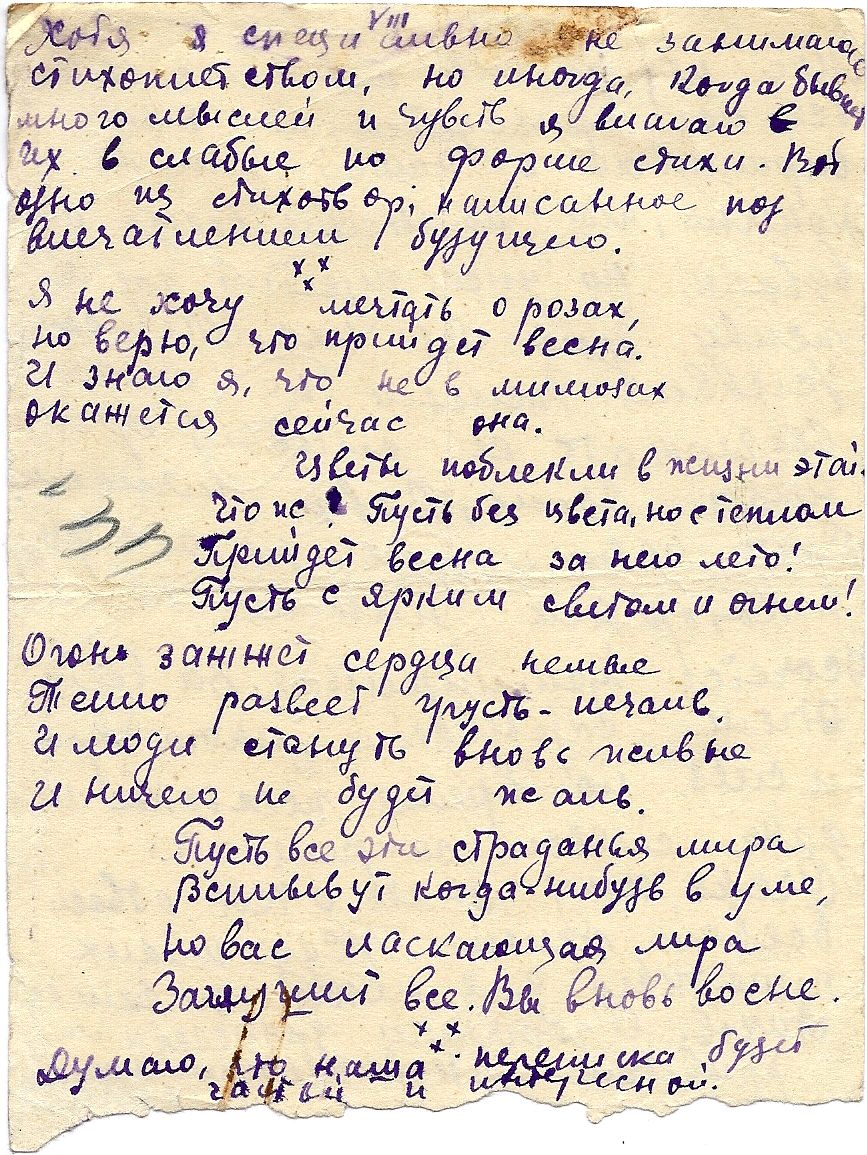 VIII
Хотя я специально не занимаюсь
стихоплетством, но иногда, когда бывает
много мыслей и чувств я влагаю
их в слабые по форме стихи. Вот
одно из стихотвор, написанное под
впечатлением будущего.
x x x
Я не хочу мечтать о розах,
но верю, что прийдет весна.
И знаю я, что не в мимозах
окажется сейчас она.
Цветы поблекли в жизни этой.
Что ж! Пусть без цвета, но с теплом
Прийдет весна за нею лето!
Пусть с ярким светом и огнем!
Огонь зажжет сердца немые
Тепло развеет грусть-печаль.
И люди стануть вновь живые
И ничего не будет жаль.
Пусть все эти страданья мира
Всплывут когда-нибудь в уме,
но вас ласкающая лира
Заглушит все. Вы вновь во сне.
x x x
Думаю, что наша переписка будет
частой и интересной.